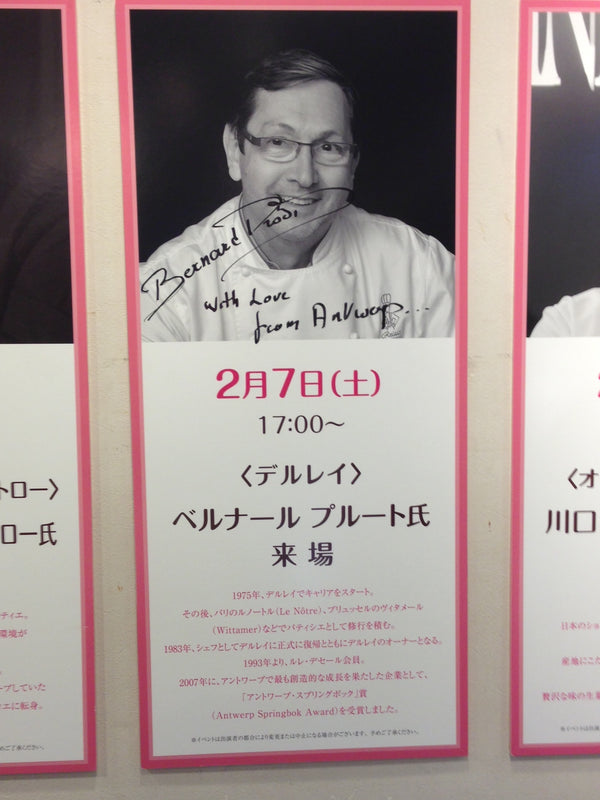 Bernard Proot
With Love
from Antwerp...
2月7日(土)
17:00〜
〈デルレイ〉
ベルナール プルート氏
来 場
1975年、デルレイでキャリアをスタート。
その後、パリのルノートル(Le Nôtre)、ブリュッセルのヴィタメール
(Wittamer)などでパティシエとして修行を積む。
1983年、シェフとしてデルレイに正式に復帰とともにデルレイのオーナーとなる。
1993年より、ルレ・デセール会員。
2007年に、アントワープで最も創造的な成長を果たした企業として、
『アントワープ・スプリングボック』賞
(Antwerp Springbok Award)を受賞しました。
※イベントは出演者の都合により変更または中止になる場合がございます。予めご了承ください。
トロー〉
ロー氏
ティエ。
環境が
ープしていた
ィエに転身。
めご了承ください。
〈オ
川口
日本のショ
産地にこだ
贅沢な味の生